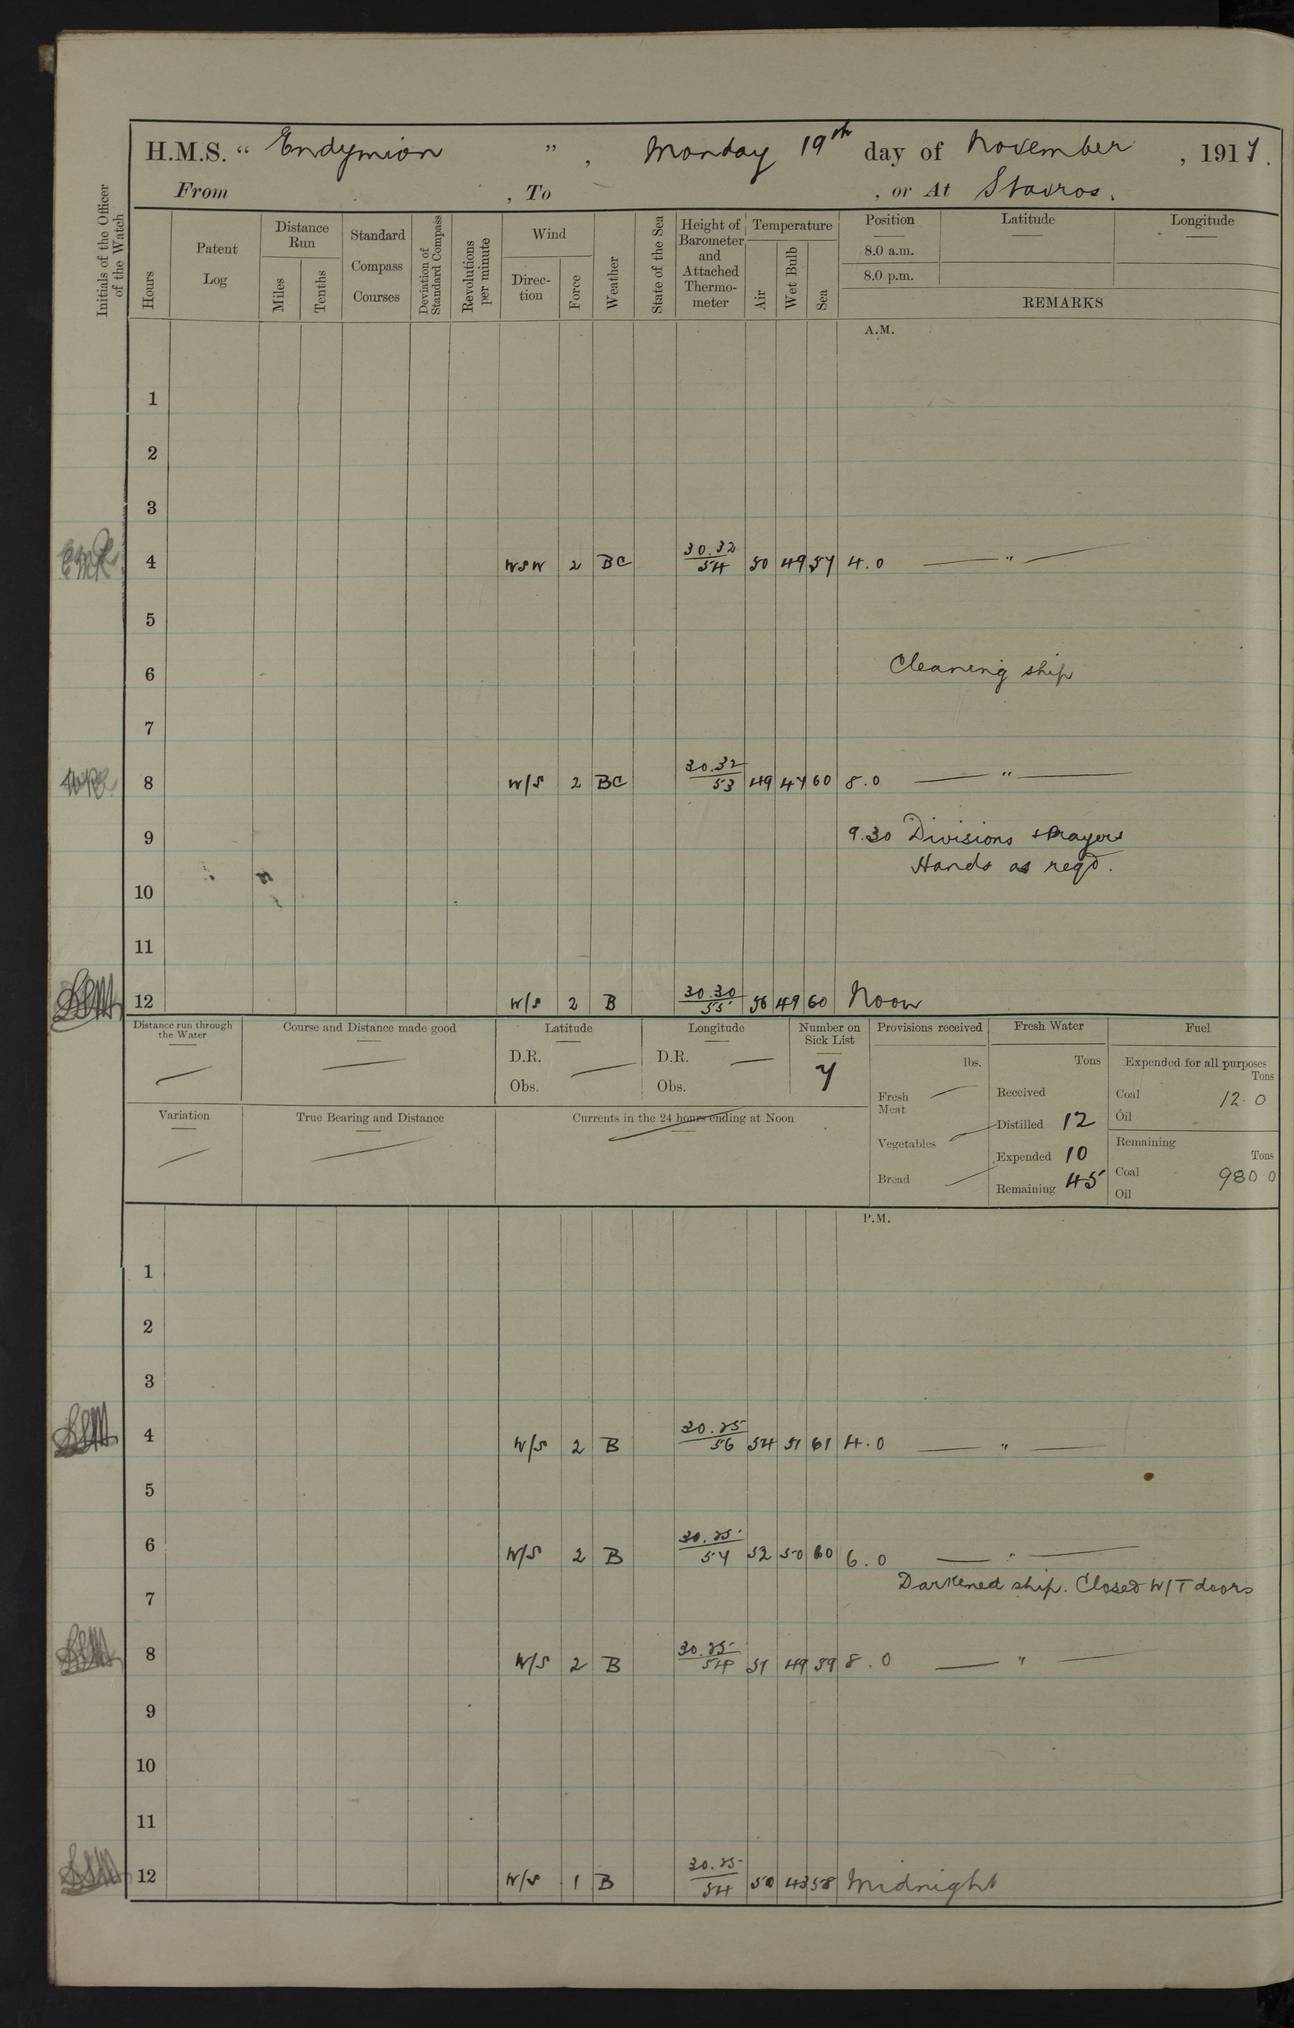 H.M.S. “ Endymion ” , Monday 19th day of November , 1917.
From , To , or At Stavros.
Initials of the Officer of the Watch
Hours
Patent Log
Distance Run
Miles
Tenths
Standard Compass Courses
Deviation of Standard Compass
Revolutions per minute
Wind
Direction
Force
Weather
State of the Sea
Height of Barometer and Attached Thermometer
Temperature
Air
Wet Bulb
Sea
Position Latitude Longitude
8.0 a.m.
8.0 p.m.
REMARKS
A.M.
1
2
3
4 WSW 2 BC 30.32/54 50 49 57 4.0 — " —
5
6 Cleaning ship
7
8 W/S 2 BC 30.32/53 49 47 60 8.0 — " —
9 9.30 Divisions & Prayers
Hands as reqd.
10
11
12 W/S 2 B 30.30/55 56 49 60 Noon
Distance run through the Water
Course and Distance made good
Latitude
D.R.
Obs.
Longitude
D.R.
Obs.
Number on Sick List
7
Variation
True Bearing and Distance
Currents in the 24 hours ending at Noon
Provisions received
lbs.
Fresh Meat
Vegetables
Bread
Fresh Water
Tons
Received
Distilled 12
Expended 10
Remaining 45
Fuel
Expended for all purposes
Tons
Coal 12.0
Oil
Remaining
Tons
Coal 980.0
Oil
P.M.
1
2
3
4 W/S 2 B 30.25/56 54 51 61 4.0 — " —
5
6 W/S 2 B 30.25/57 52 50 60 6.0 — " —
Darkened ship. Closed W/T doors
7
8 W/S 2 B 30.25/54 51 49 59 8.0 — " —
9
10
11
12 W/S 1 B 30.25/54 50 43 58 Midnight